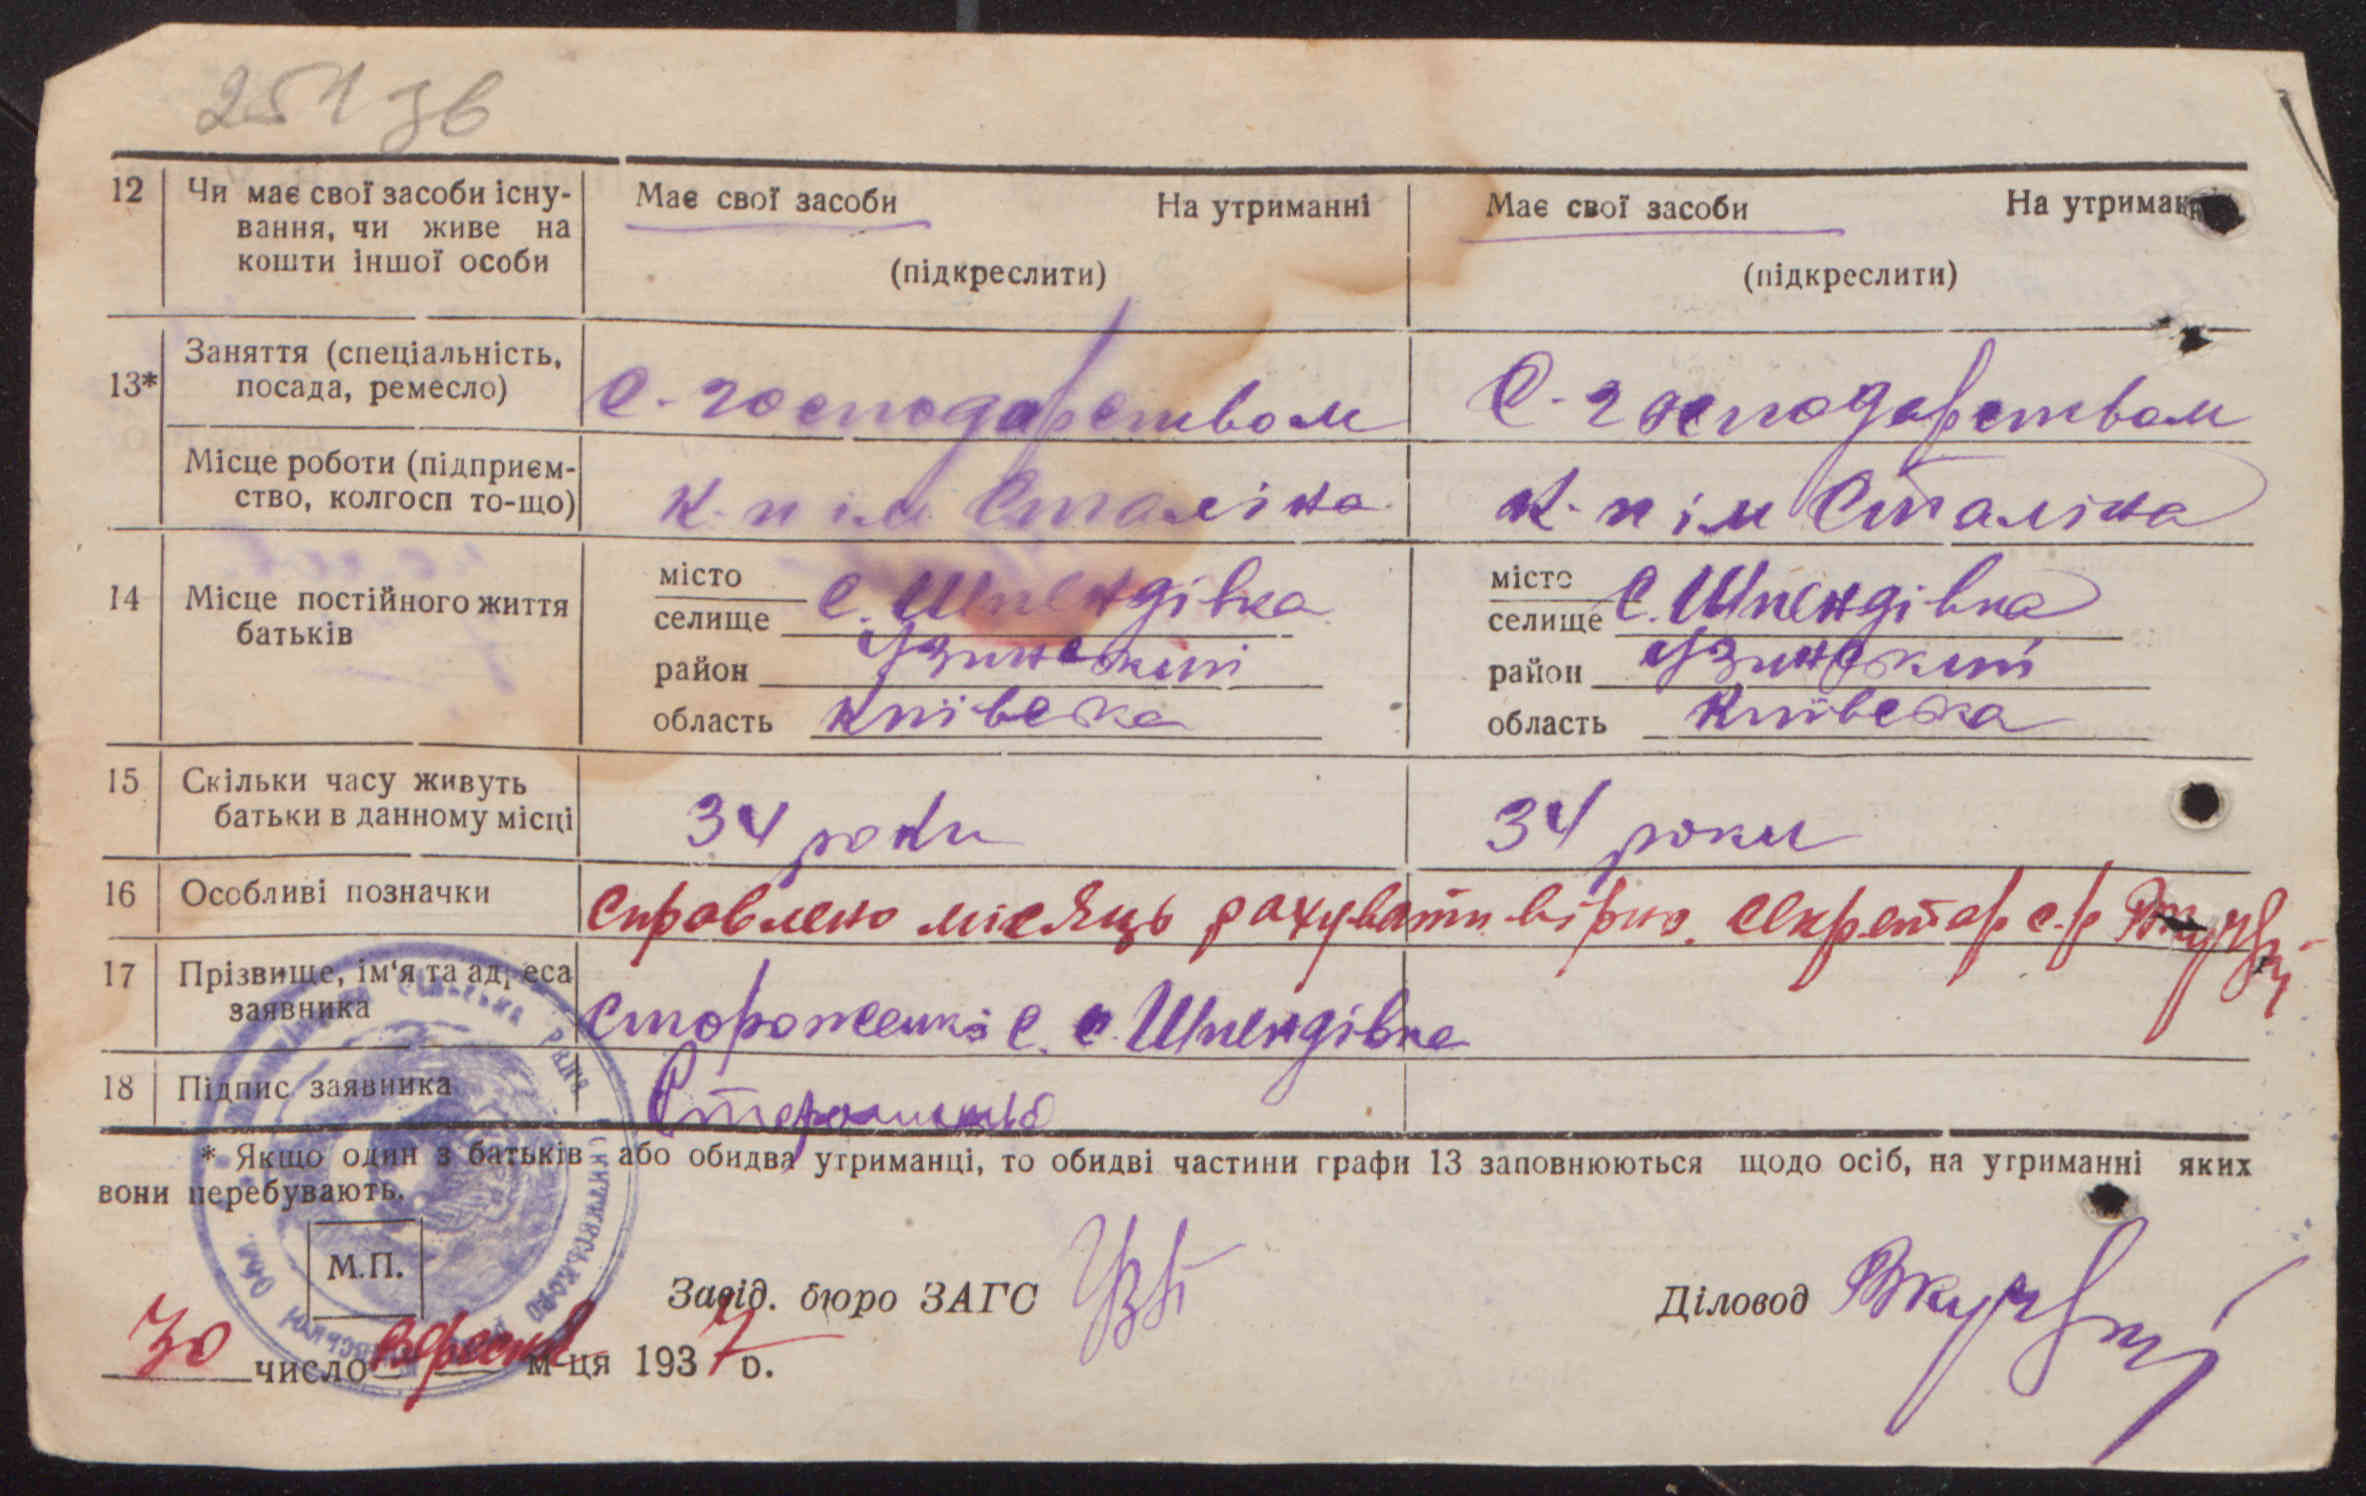 251 зв
12 Чи має свої засоби існу- Має свої засоби На утриманні Має свої засоби На утриман
вання, чи живе на
кошти іншої особи (підкреслити) (підкреслити)
Заняття (спеціальність,
13* посада, ремесло) С. господарством С. господарством
Місце роботи (підприєм-
ство, колгосп то-що) к-п ім Сталіна к-п ім Сталіна
місто місто
14 Місце постійного життя селище с. Шпендівка селище с. Шпендівка
батьків район Узинський район Узинський
область Київська область Київська
15 Скільки часу живуть
батьки в данному місці 34 роки 34 роки
16 Особливі позначки Справлено місяць рахувати вірно. секретар с/р
17 Прізвище, ім'я та адреса
заявника Стороженко С. с. Шпендівка
18 Підпис заявника
* Якщо один з батьків або обидва утриманці, то обидві частини графи 13 заповнюються щодо осіб, на утриманні яких
вони перебувають.
М.П.
Завід. бюро ЗАГС Діловод
30 число вересня м-ця 1937 р.